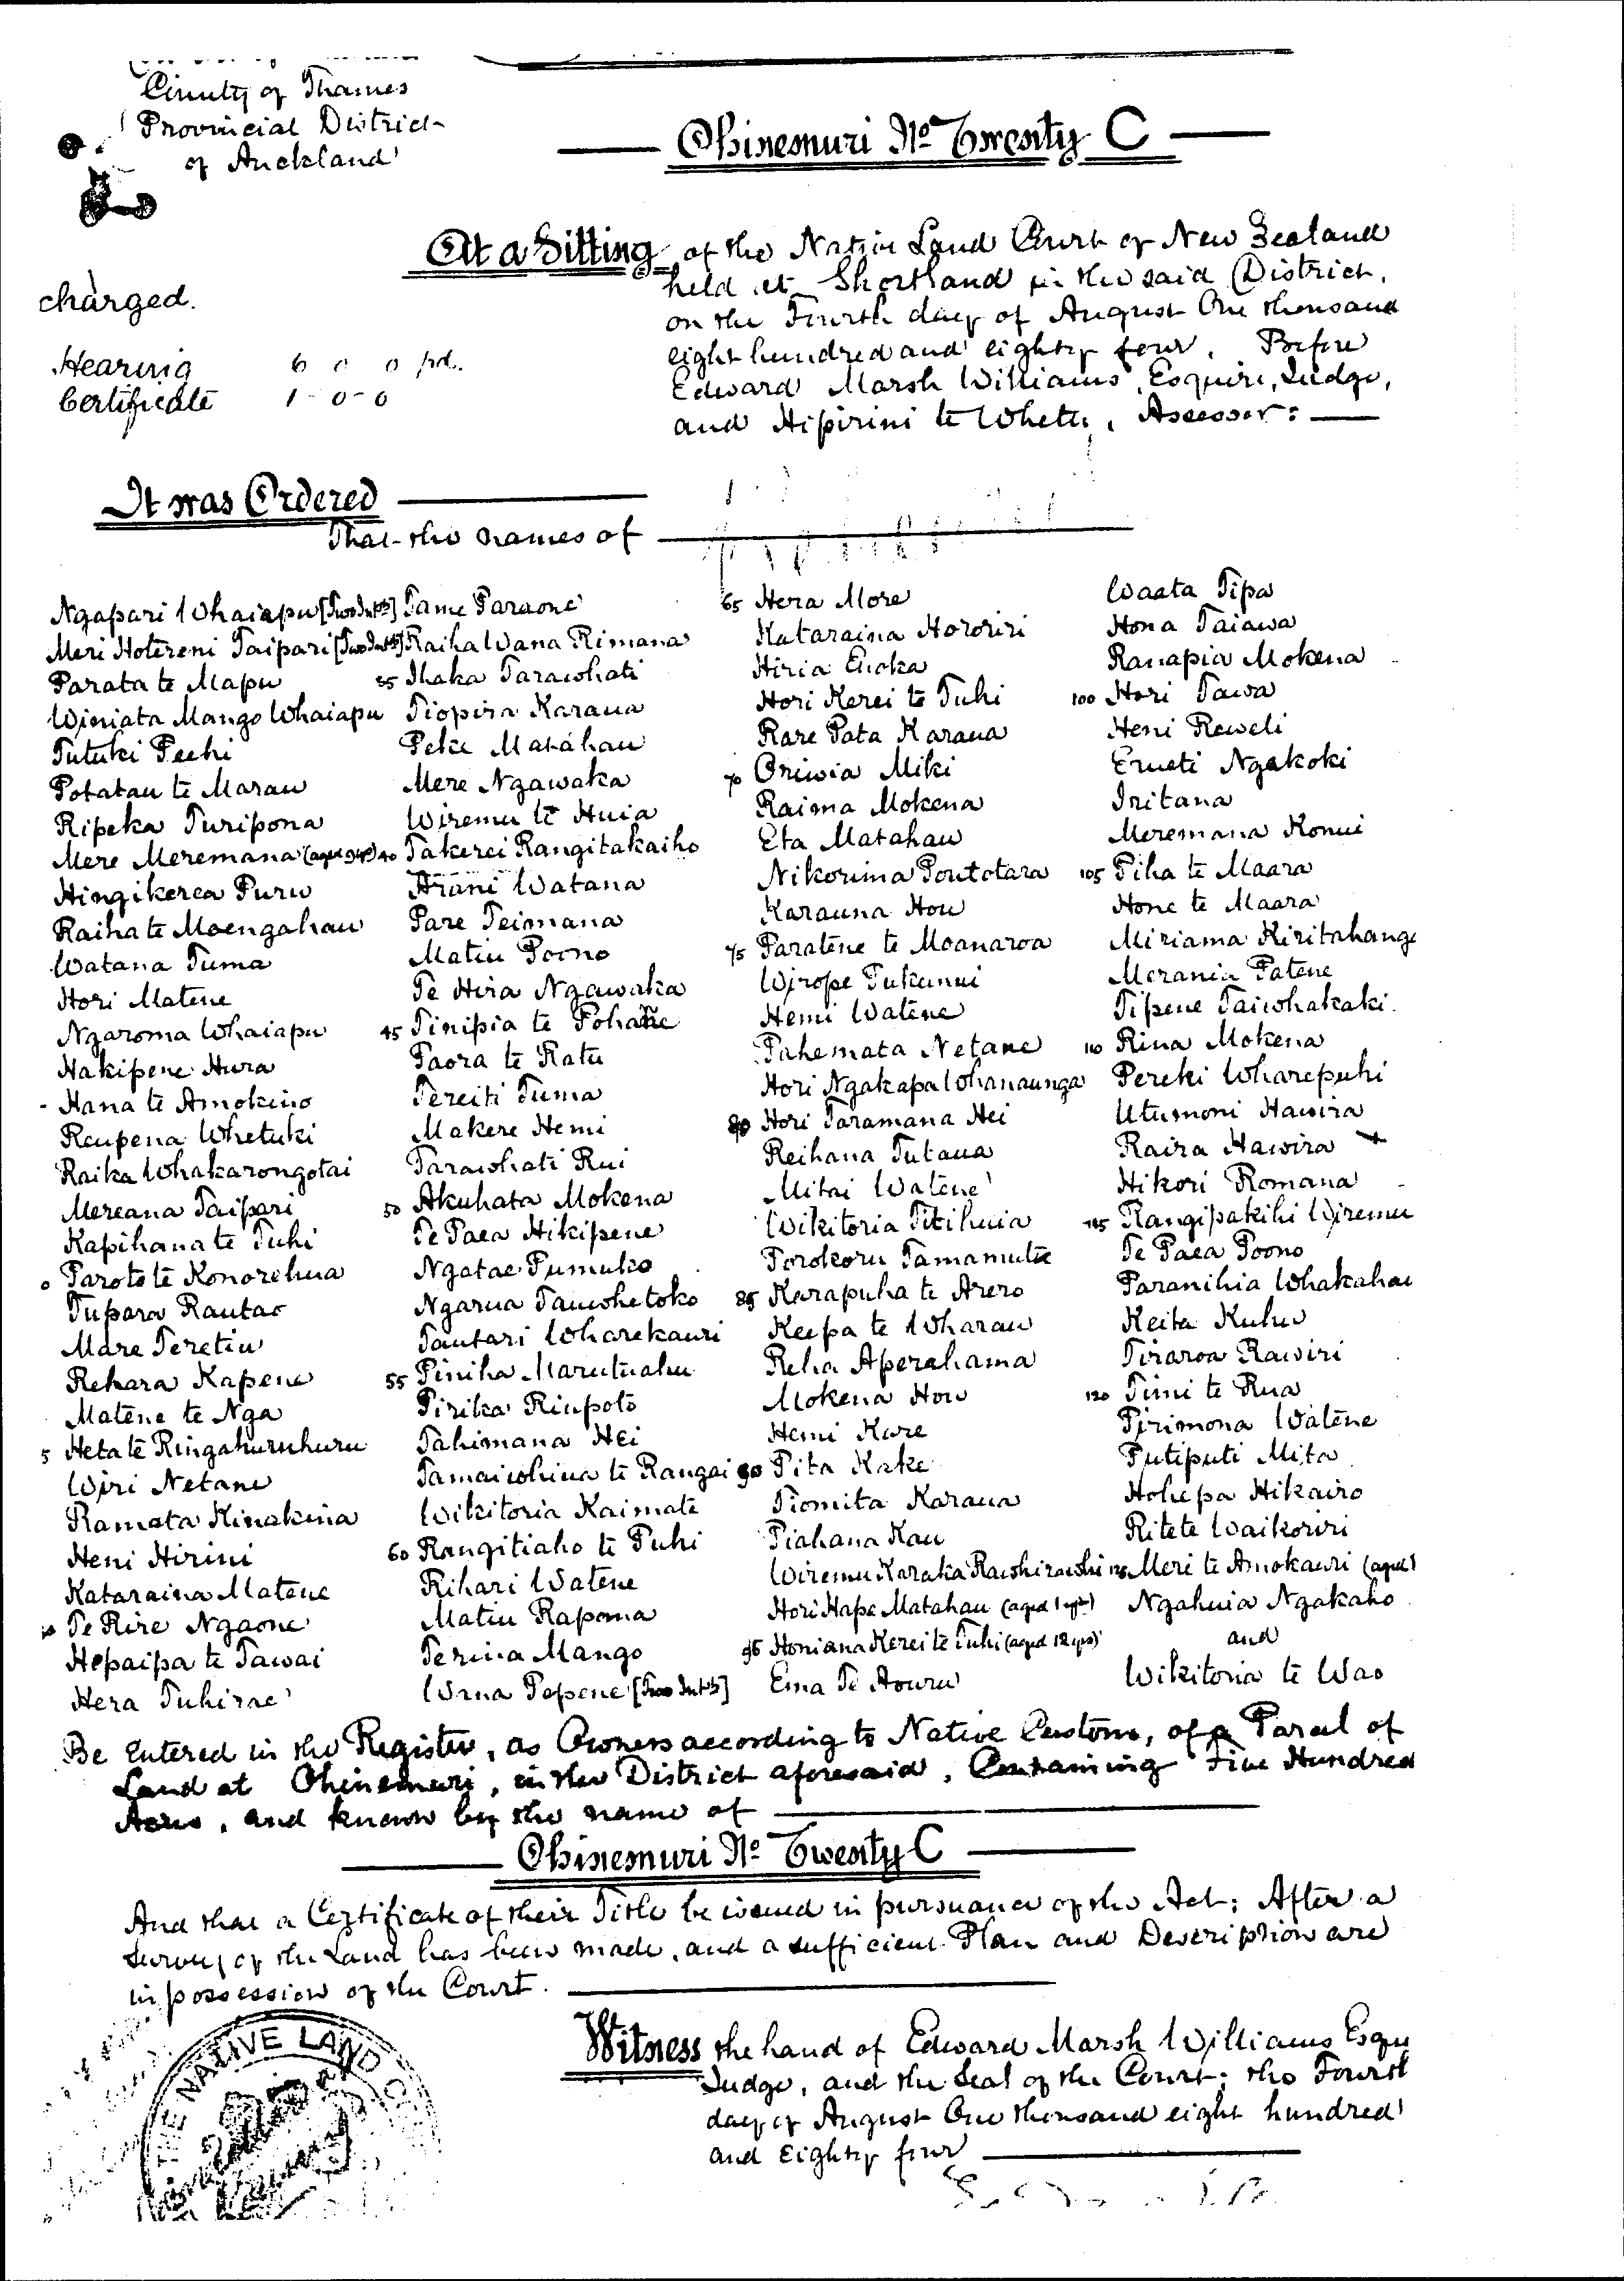 County of Thames
Provincial District
of Auckland
Ohinemuri No Twenty C
At a Sitting of the Native Land Court of New Zealand
held at Shortland in the said District,
on the Fourth day of August One thousand
eight hundred and eighty four. Before
Edward Marsh Williams, Esquire, Judge,
and Hipirini te Whetu, Assessor:
charged.
Hearing 6 0 0 pd.
Certificate 1-0-0
It was Ordered
That the names of
Ngapari Whaiapu [Two Intsts]
Meri Hotereni Taipari [Two Intsts]
Parata te Mapu
Winiata Mango Whaiapu
Tutuki Pechi
Potatau te Marau
Ripeka Turipona
Mere Meremana (aged 9 yrs)
Hingikerea Puru
Raiha te Moengahau
Watana Tuma
Hori Matene
Ngaroma Whaiapu
Hakipene Hura
Hana te Amokino
Reupena Whetuki
Raika Whakarongotai
Mereana Taipari
Kapihana te Tuhi
0 Paroto te Konorehua
Tupara Rautao
Mare Teretiu
Rehara Kapene
Matene te Nga
5 Heta te Ringahuruhuru
Wiri Netane
Ramata Kinakina
Heni Hirini
Kataraina Matene
30 Te Rire Ngaone
Hepaipa te Tawai
Hera Tuhirae
Tame Paraone
Raiha Wana Rimana
35 Ihaka Tarawhati
Tiopira Karaua
Peke Matahau
Mere Ngawaka
Wiremu te Huia
40 Takerei Rangitakaiho
Arani Watana
Pare Teimana
Matiu Poono
Te Hira Ngawaka
45 Tinipia te Pohane
Paora te Ratu
Tereiti Tuma
Makere Hemi
Tarawhati Rui
50 Akuhata Mokena
Te Paea Hikipene
Ngatae Pumuko
Ngarua Tauwhetoko
Tautari Wharekauri
55 Piniha Marutuahu
Pirika Riupoto
Tahimana Hei
Tamaiwhiua te Rangai
Wikitoria Kaimate
60 Rangitiaho te Puhi
Rihari Watene
Matiu Rapoma
Terina Mango
Wana Pepene [Two Intsts]
65 Hera More
Kataraina Hororiri
Hiria Enoka
Hori Kerei te Tuhi
Rare Pata Karaua
70 Oriwia Miki
Raima Mokena
Eta Matahau
Nikorima Poutotara
Karauna Hou
75 Paratene te Moanaroa
Wirope Tukumui
Hemi Watene
Pahemata Netane
Hori Ngakapa Whanaunga
80 Hori Taramana Hei
Reihana Tutaua
Mitai Watene
Wikitoria Titihuia
Porokoru Tamamutu
85 Karapuha te Arero
Keepa te Wharau
Reha Aperahama
Mokena Hou
Hemi Kare
90 Pita Kake
Tiomita Karaua
Piahana Kau
Wiremu Karaka Rawhirawhi
Hori Hapa Matahau (aged 1 yr)
95 Honiana Kerei te Tuhi (aged 12 yrs)
Ema Te Aouru
Waata Tipa
Hona Taiawa
Ranapia Mokena
100 Hori Tawa
Heni Reweti
Erueti Ngakoki
Iritana
Meremana Konui
105 Piha te Maara
Hone te Maara
Miriama Kiritahanga
Merania Patene
Tipene Taiwhakaki
110 Rina Mokena
Pereki Wharepuhi
Utumoni Hawira
Raira Hawira
Hikori Romana
115 Rangipakihi Wiremu
Te Paea Poono
Paranihia Whakahau
Keita Kuhu
Tiraroa Rawiri
120 Timi te Rua
Pirimona Watene
Putiputi Mita
Hohepa Hikairo
Ritete Waikoriri
125 Meri te Amokauri (aged)
Ngahuia Ngakaho
and
Wikitoria te Wao
Be Entered in the Register, as Owners according to Native Custom, of a Parcel of
Land at Ohinemuri, in the District aforesaid, Containing Five Hundred
Acres, and known by the name of
Ohinemuri No Twenty C
And that a Certificate of their Title be issued in pursuance of the Act: After a
Survey of the Land has been made, and a sufficient Plan and Description are
in possession of the Court.
Witness the hand of Edward Marsh Williams Esqu
Judge, and the Seal of the Court; the Fourth
day of August One thousand eight hundred
and Eighty four
THE NATIVE LAND CO